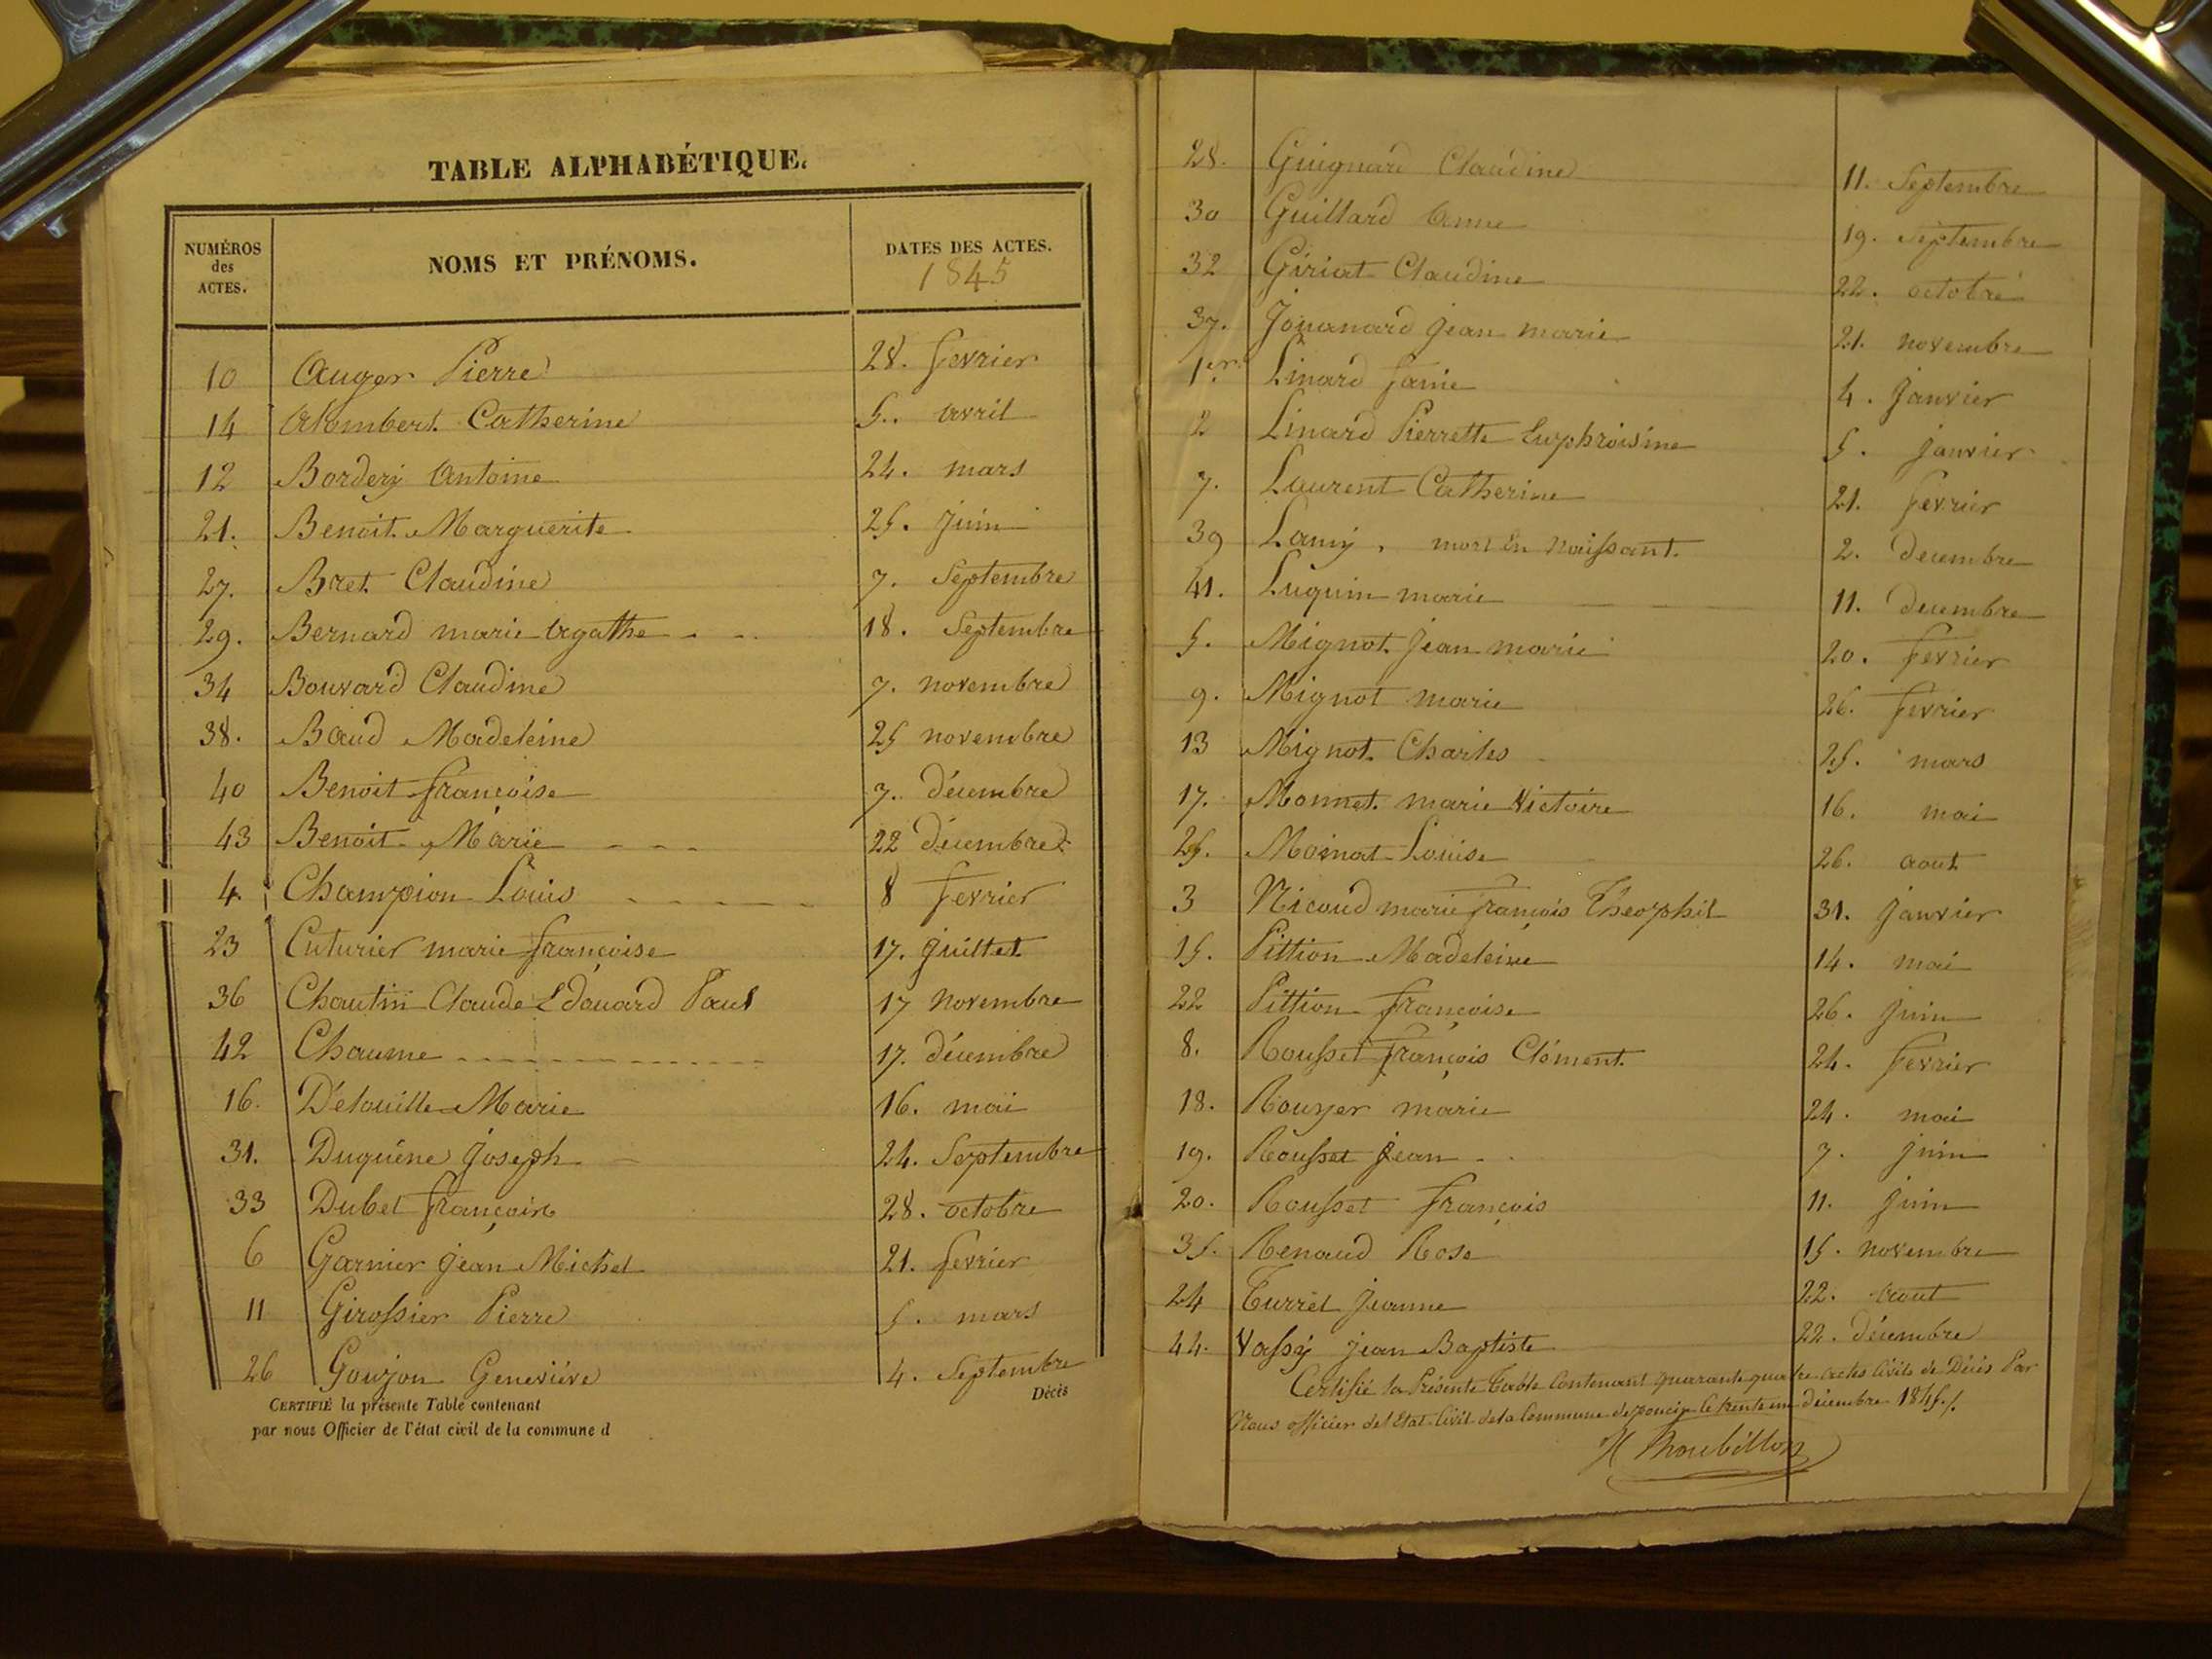 TABLE ALPHABÉTIQUE.
NUMÉROS des ACTES. NOMS ET PRÉNOMS. DATES DES ACTES.
1845
10 Auger Pierre 28. fevrier
14 Alombert Catherine 5. avril
12 Bordery Antoine 24. mars
21. Benoit Marguerite 25. juin
27. Bret Claudine 7. Septembre
29. Bernard marie Agathe 18. Septembre
34 Bouvard Claudine 7. novembre
38. Baud Madeleine 25 novembre
40 Benoit françoise 7. décembre
43 Benoit Marie 22 décembre
4. Champion Louis 8 fevrier
23 Cuturier marie françoise 17. juillet
36 Chautin Claude Edouard Paul 17 novembre
42 Chaume 17. décembre
16. Délouille Marie 16. mai
31. Duquéne Joseph 24. Septembre
33 Dubet françoise 28. octobre
6 Garnier jean Michel 21. fevrier
11 Girossier Pierre 5. mars
26 Goujon Geneviéve 4. Septembre
Décès
CERTIFIÉ la présente Table contenant
par nous Officier de l'état civil de la commune d
28. Guignard Claudine 11. Septembre
30 Guillard Anne 19. Septembre
32 Giriat Claudine 22. octobre
37. Jouanard jean marie 21. novembre
1er. Linard fanie 4. janvier
2 Linard Pierrette Euphroisine 5. janvier
7. Laurent Catherine 21. fevrier
39 Lamy. mort en naissant. 2. decembre
41. Luquin marie 11. decembre
5. Mignot jean marie 20. fevrier
9. Mignot marie 26. fevrier
13 Mignot Charles 25. mars
17. Monnet marie Victoire 16. mai
25. Moinat Louise 26. aout
3 Nicoud marie françois Théophil 31. janvier
15. Pittion Madeleine 14. mai
22 Pittion françoise 26. juin
8. Rousset françois Clément. 24. fevrier
18. Rouyer marie 24. mai
19. Rousset jean 7. juin
20. Rousset françois 11. juin
35. Renaud Rose 15. novembre
24 Turrel jeanne 22. aout
44. Vassy jean Baptiste 22. décembre
Certifié la Présente Table Contenant quarante quatre actes Civils de Décès Par
Nous officier de l'Etat Civil de la Commune de poncin le trente un décembre 1845.